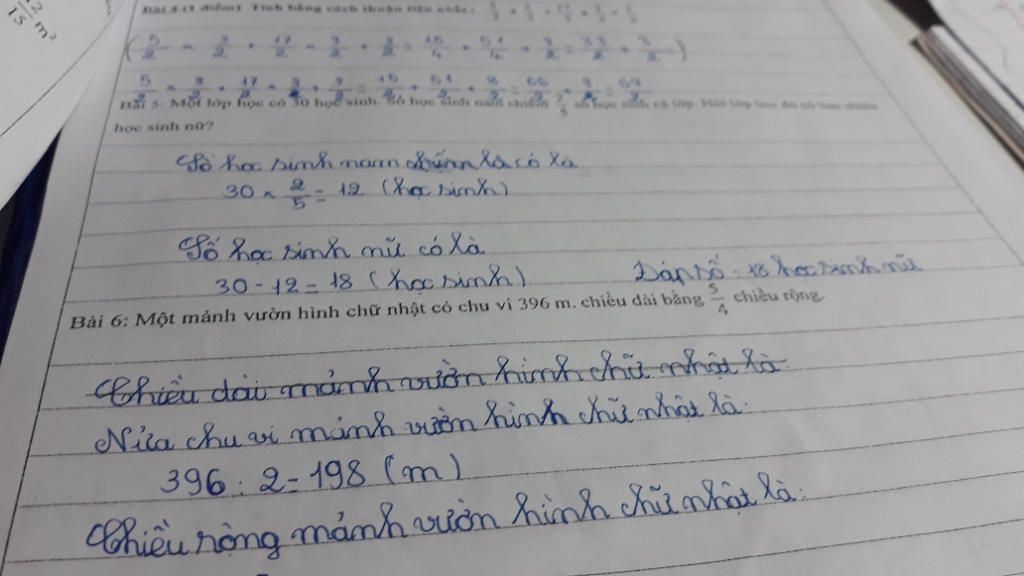 12/15 m²
Bài 4 (1 điểm) Tính bằng cách thuận tiện nhất :
Bài 5: Một lớp học có 30 học sinh. Số học sinh nam chiếm 2/5 số học sinh cả lớp. Hỏi lớp học đó có bao nhiêu
học sinh nữ?
Số học sinh nam có là
30 × 2/5 = 12 (học sinh)
Số học sinh nữ có là
30 - 12 = 18 (học sinh) Đáp số : 18 học sinh nữ
Bài 6: Một mảnh vườn hình chữ nhật có chu vi 396 m. chiều dài bằng 5/4 chiều rộng.
Chiều dài mảnh vườn hình chữ nhật là:
Nửa chu vi mảnh vườn hình chữ nhật là:
396 : 2 = 198 (m)
Chiều rộng mảnh vườn hình chữ nhật là: